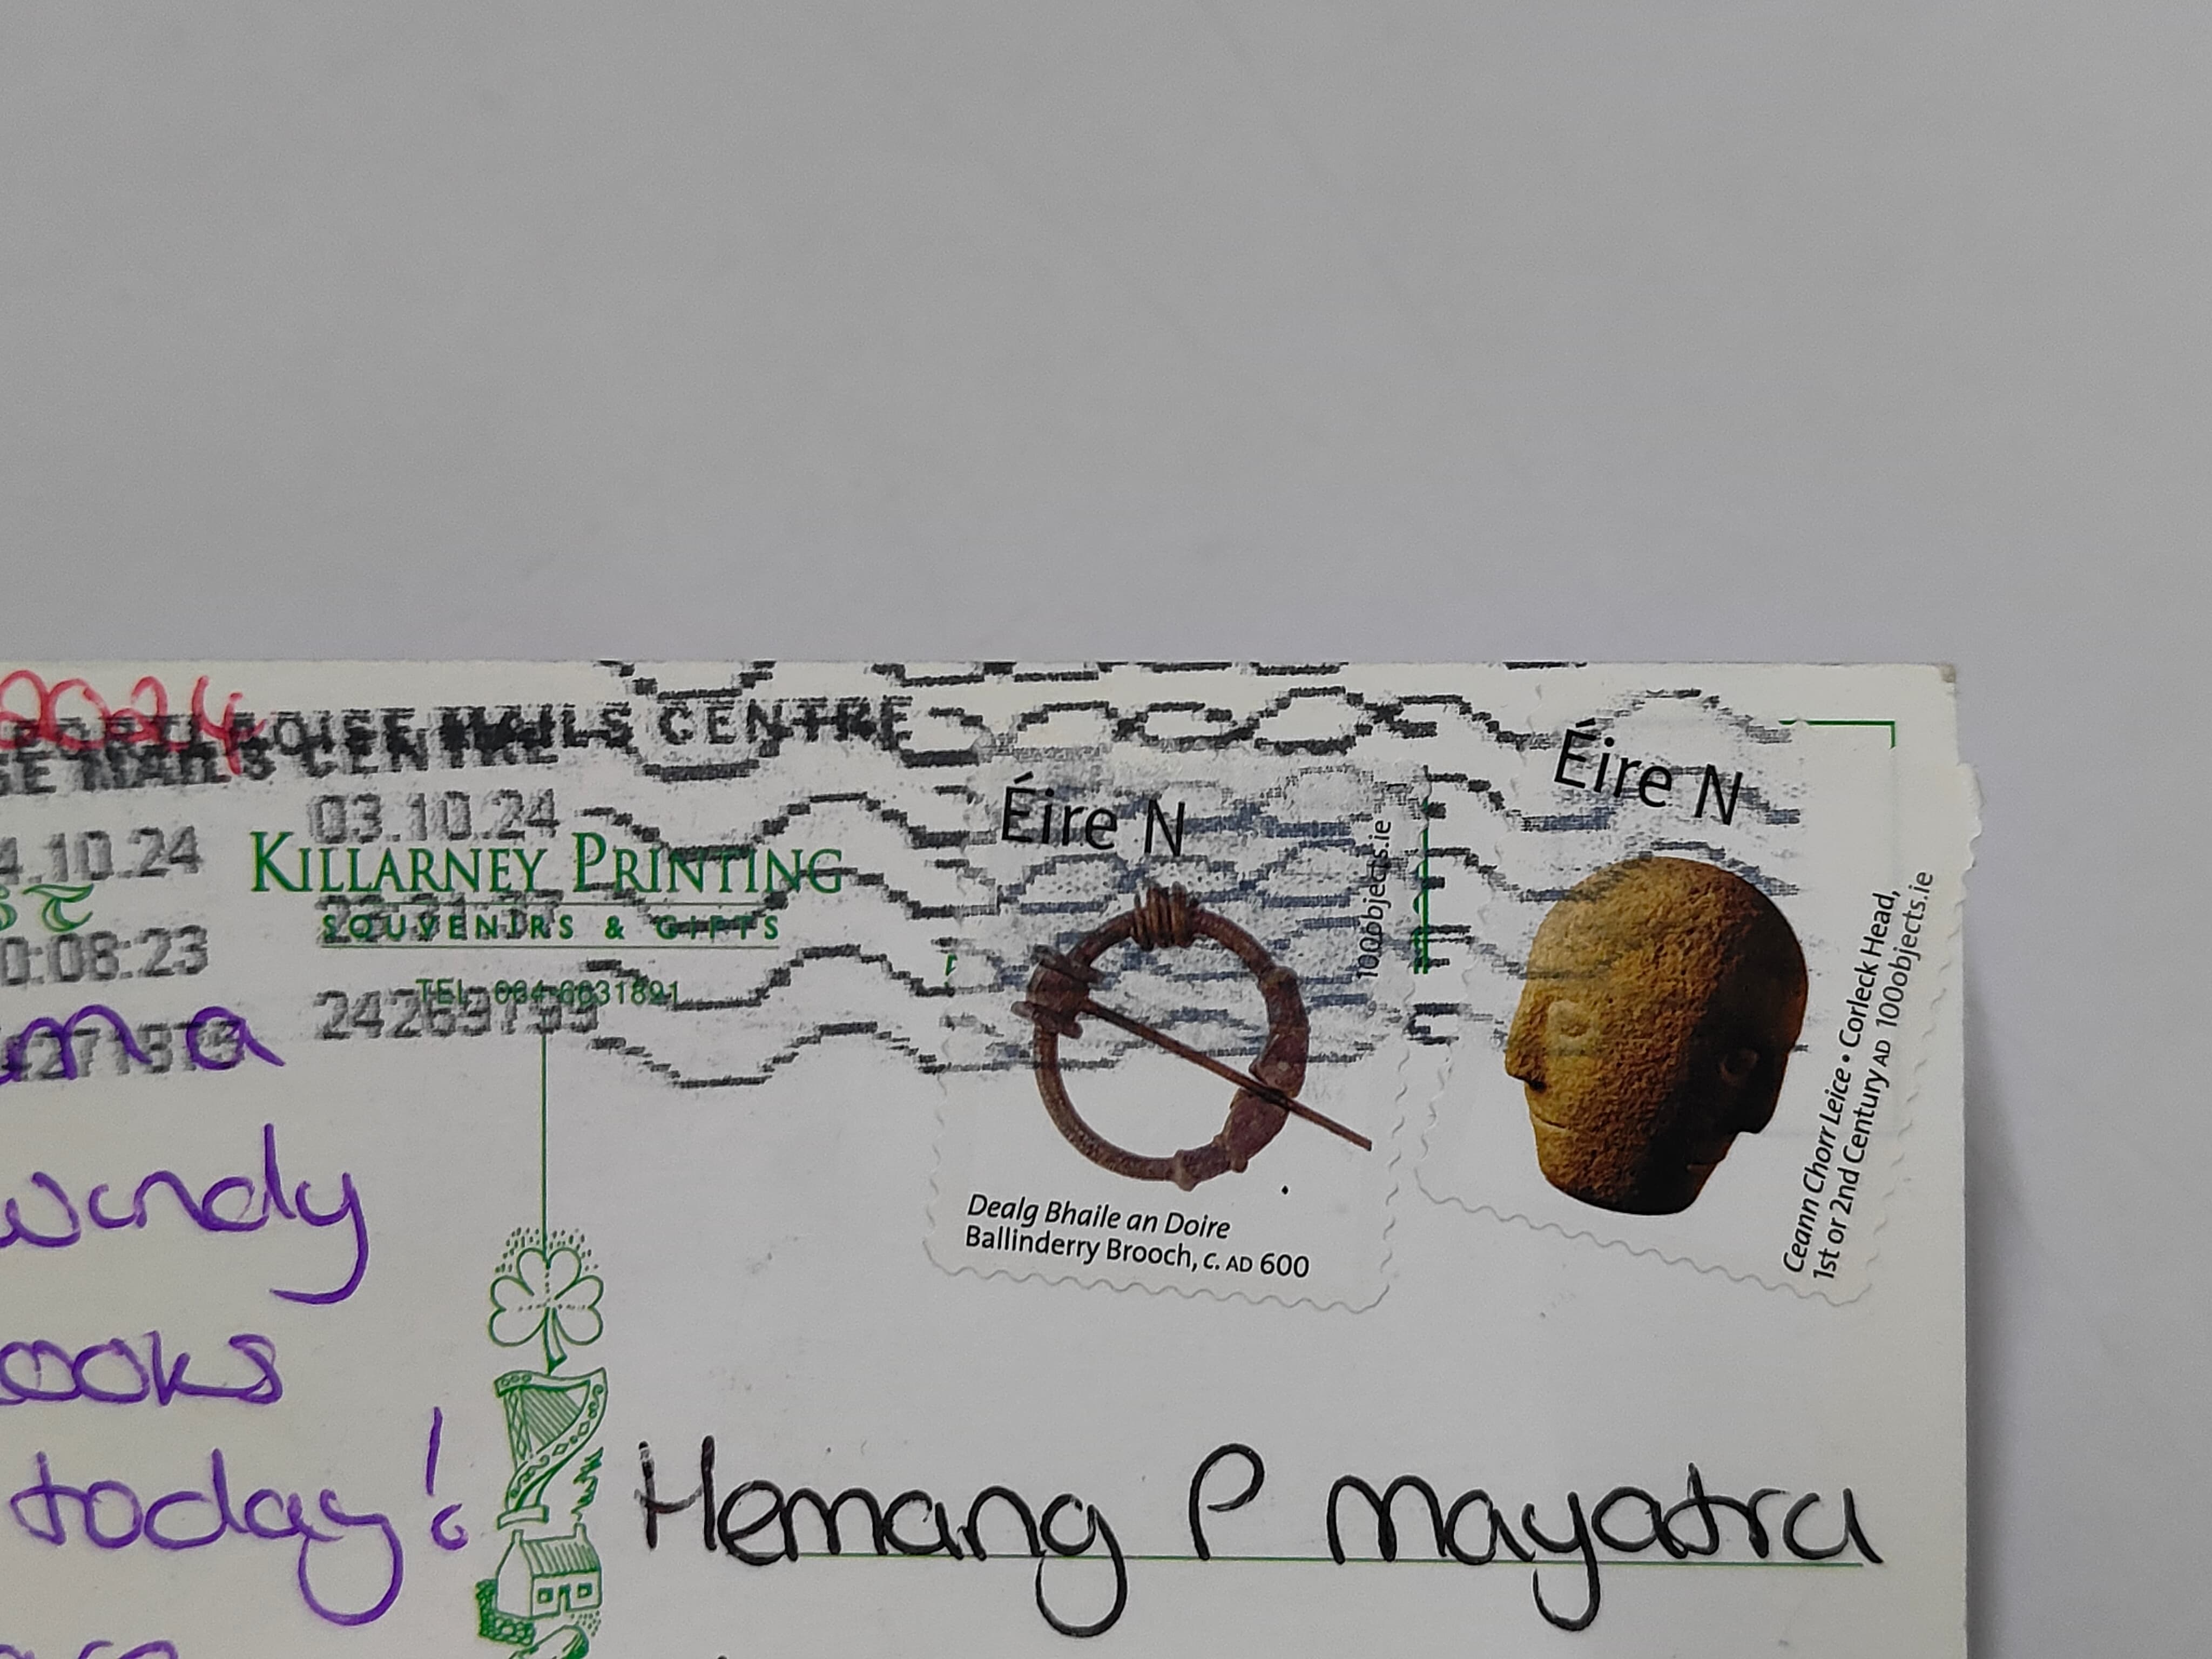 2024
PORTLAOISE MAILS CENTRE
SE MAILS CENTRE
03.10.24
4.10.24
KILLARNEY PRINTING
SOUVENIRS & GIFTS
0:08:23
TEL: 064-6631891
24269799
Éire N
100objects.ie
Dealg Bhaile an Doire
Ballinderry Brooch, C. AD 600
Éire N
Ceann Chorr Leice • Corleck Head,
1st or 2nd Century AD 100objects.ie
windy
ooks
today!
Hemang P Mayatra